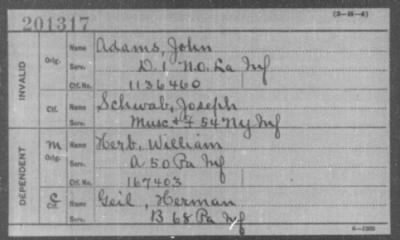 201317
(3-H-4)
INVALID
Orig.
Name Adams, John
Serv. D. 1 No. La Inf
Ctf. No. 1136460
Ctf.
Name Schwab, Joseph
Serv. Musc + F 54 Ny Inf
DEPENDENT
M
Orig.
Name Herb, William
Serv. A 50 Pa Inf
Ctf. No. 167403
C
Ctf.
Name Geil, Herman
Serv. B 68 Pa Inf